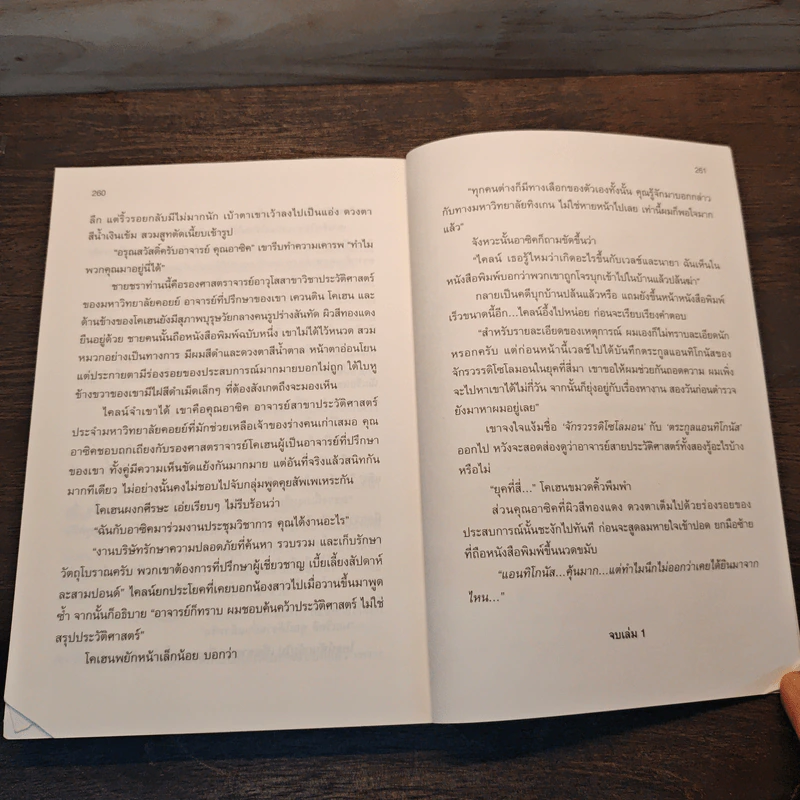 260
ลึก แต่ริ้วรอยกลับมีไม่มากนัก เบ้าตาเขาเว้าลงไปเป็นแอ่ง ดวงตา
สีน้ำเงินเข้ม สวมสูทตัดเนี้ยบเข้ารูป
“อรุณสวัสดิ์ครับอาจารย์ คุณอาซิค” เขารีบทำความเคารพ “ทำไม
พวกคุณมาอยู่นี่ได้”
ชายชราท่านนี้คือรองศาสตราจารย์อาวุโสสาขาวิชาประวัติศาสตร์
ของมหาวิทยาลัยคอยย์ อาจารย์ที่ปรึกษาของเขา เควนติน โคเฮน และ
ด้านข้างของโคเฮนยังมีสุภาพบุรุษวัยกลางคนรูปร่างสันทัด ผิวสีทองแดง
ยืนอยู่ด้วย ชายคนนั้นถือหนังสือพิมพ์ฉบับหนึ่ง เขาไม่ได้ไว้หนวด สวม
หมวกอย่างเป็นทางการ มีผมสีดำและดวงตาสีน้ำตาล หน้าตาอ่อนโยน
แต่ประกายตามีร่องรอยของประสบการณ์มากมายบอกไม่ถูก ใต้ใบหู
ข้างขวาของเขามีไฝสีดำเม็ดเล็กๆ ที่ต้องสังเกตถึงจะมองเห็น
ไคลน์จำเขาได้ เขาคือคุณอาซิค อาจารย์สาขาประวัติศาสตร์
ประจำมหาวิทยาลัยคอยย์ที่มักช่วยเหลือเจ้าของร่างคนเก่าเสมอ คุณ
อาซิคชอบถกเถียงกับรองศาสตราจารย์โคเฮนผู้เป็นอาจารย์ที่ปรึกษา
ของเขา ทั้งคู่มีความเห็นขัดแย้งกันมากมาย แต่อันที่จริงแล้วสนิทกัน
มากทีเดียว ไม่อย่างนั้นคงไม่ชอบไปจับกลุ่มพูดคุยสัพเพเหระกัน
โคเฮนผงกศีรษะ เอ่ยเรียบๆ ไม่รีบร้อนว่า
“ฉันกับอาซิคมาร่วมงานประชุมวิชาการ คุณได้งานอะไร”
“งานบริษัทรักษาความปลอดภัยที่ค้นหา รวบรวม และเก็บรักษา
วัตถุโบราณครับ พวกเขาต้องการที่ปรึกษาผู้เชี่ยวชาญ เบี้ยเลี้ยงสัปดาห์
ละสามปอนด์” ไคลน์ยกประโยคที่เคยบอกน้องสาวไปเมื่อวานขึ้นมาพูด
ซ้ำ จากนั้นก็อธิบาย “อาจารย์ก็ทราบ ผมชอบค้นคว้าประวัติศาสตร์ ไม่ใช่
สรุปประวัติศาสตร์”
โคเฮนพยักหน้าเล็กน้อย บอกว่า
261
“ทุกคนต่างก็มีทางเลือกของตัวเองทั้งนั้น คุณรู้จักมาบอกกล่าว
กับทางมหาวิทยาลัยทิงเกน ไม่ใช่หายหน้าไปเลย เท่านี้ผมก็พอใจมาก
แล้ว”
จังหวะนั้นอาซิคก็ถามขัดขึ้นว่า
“ไคลน์ เธอรู้ไหมว่าเกิดอะไรขึ้นกับเวลช์และนายา ฉันเห็นใน
หนังสือพิมพ์บอกว่าพวกเขาถูกโจรบุกเข้าไปในบ้านแล้วปล้นฆ่า”
กลายเป็นคดีบุกบ้านปล้นแล้วหรือ แถมยังขึ้นหน้าหนังสือพิมพ์
เร็วขนาดนี้อีก…ไคลน์อึ้งไปหน่อย ก่อนจะเรียบเรียงคำตอบ
“สำหรับรายละเอียดของเหตุการณ์ ผมเองก็ไม่ทราบละเอียดนัก
หรอกครับ แต่ก่อนหน้านี้เวลช์ไปได้บันทึกตระกูลแอนทิโกนัสของ
จักรวรรดิโซโลมอนในยุคที่สี่มา เขาขอให้ผมช่วยกันถอดความ ผมเพิ่ง
จะไปหาเขาได้ไม่กี่วัน จากนั้นก็ยุ่งอยู่กับเรื่องหางาน สองวันก่อนตำรวจ
ยังมาหาผมอยู่เลย”
เขาจงใจแง้มชื่อ ‘จักรวรรดิโซโลมอน’ กับ ‘ตระกูลแอนทิโกนัส’
ออกไป หวังจะสอดส่องดูว่าอาจารย์สายประวัติศาสตร์ทั้งสองรู้อะไรบ้าง
หรือไม่
“ยุคที่สี่…” โคเฮนขมวดคิ้วพึมพำ
ส่วนคุณอาซิคที่ผิวสีทองแดง ดวงตาเต็มไปด้วยร่องรอยของ
ประสบการณ์นั้นชะงักไปทันที ก่อนจะสูดลมหายใจเข้าปอด ยกมือซ้าย
ที่ถือหนังสือพิมพ์ขึ้นนวดขมับ
“แอนทิโกนัส…คุ้นมาก…แต่ทำไมนึกไม่ออกว่าเคยได้ยินมาจาก
ไหน…”
จบเล่ม 1